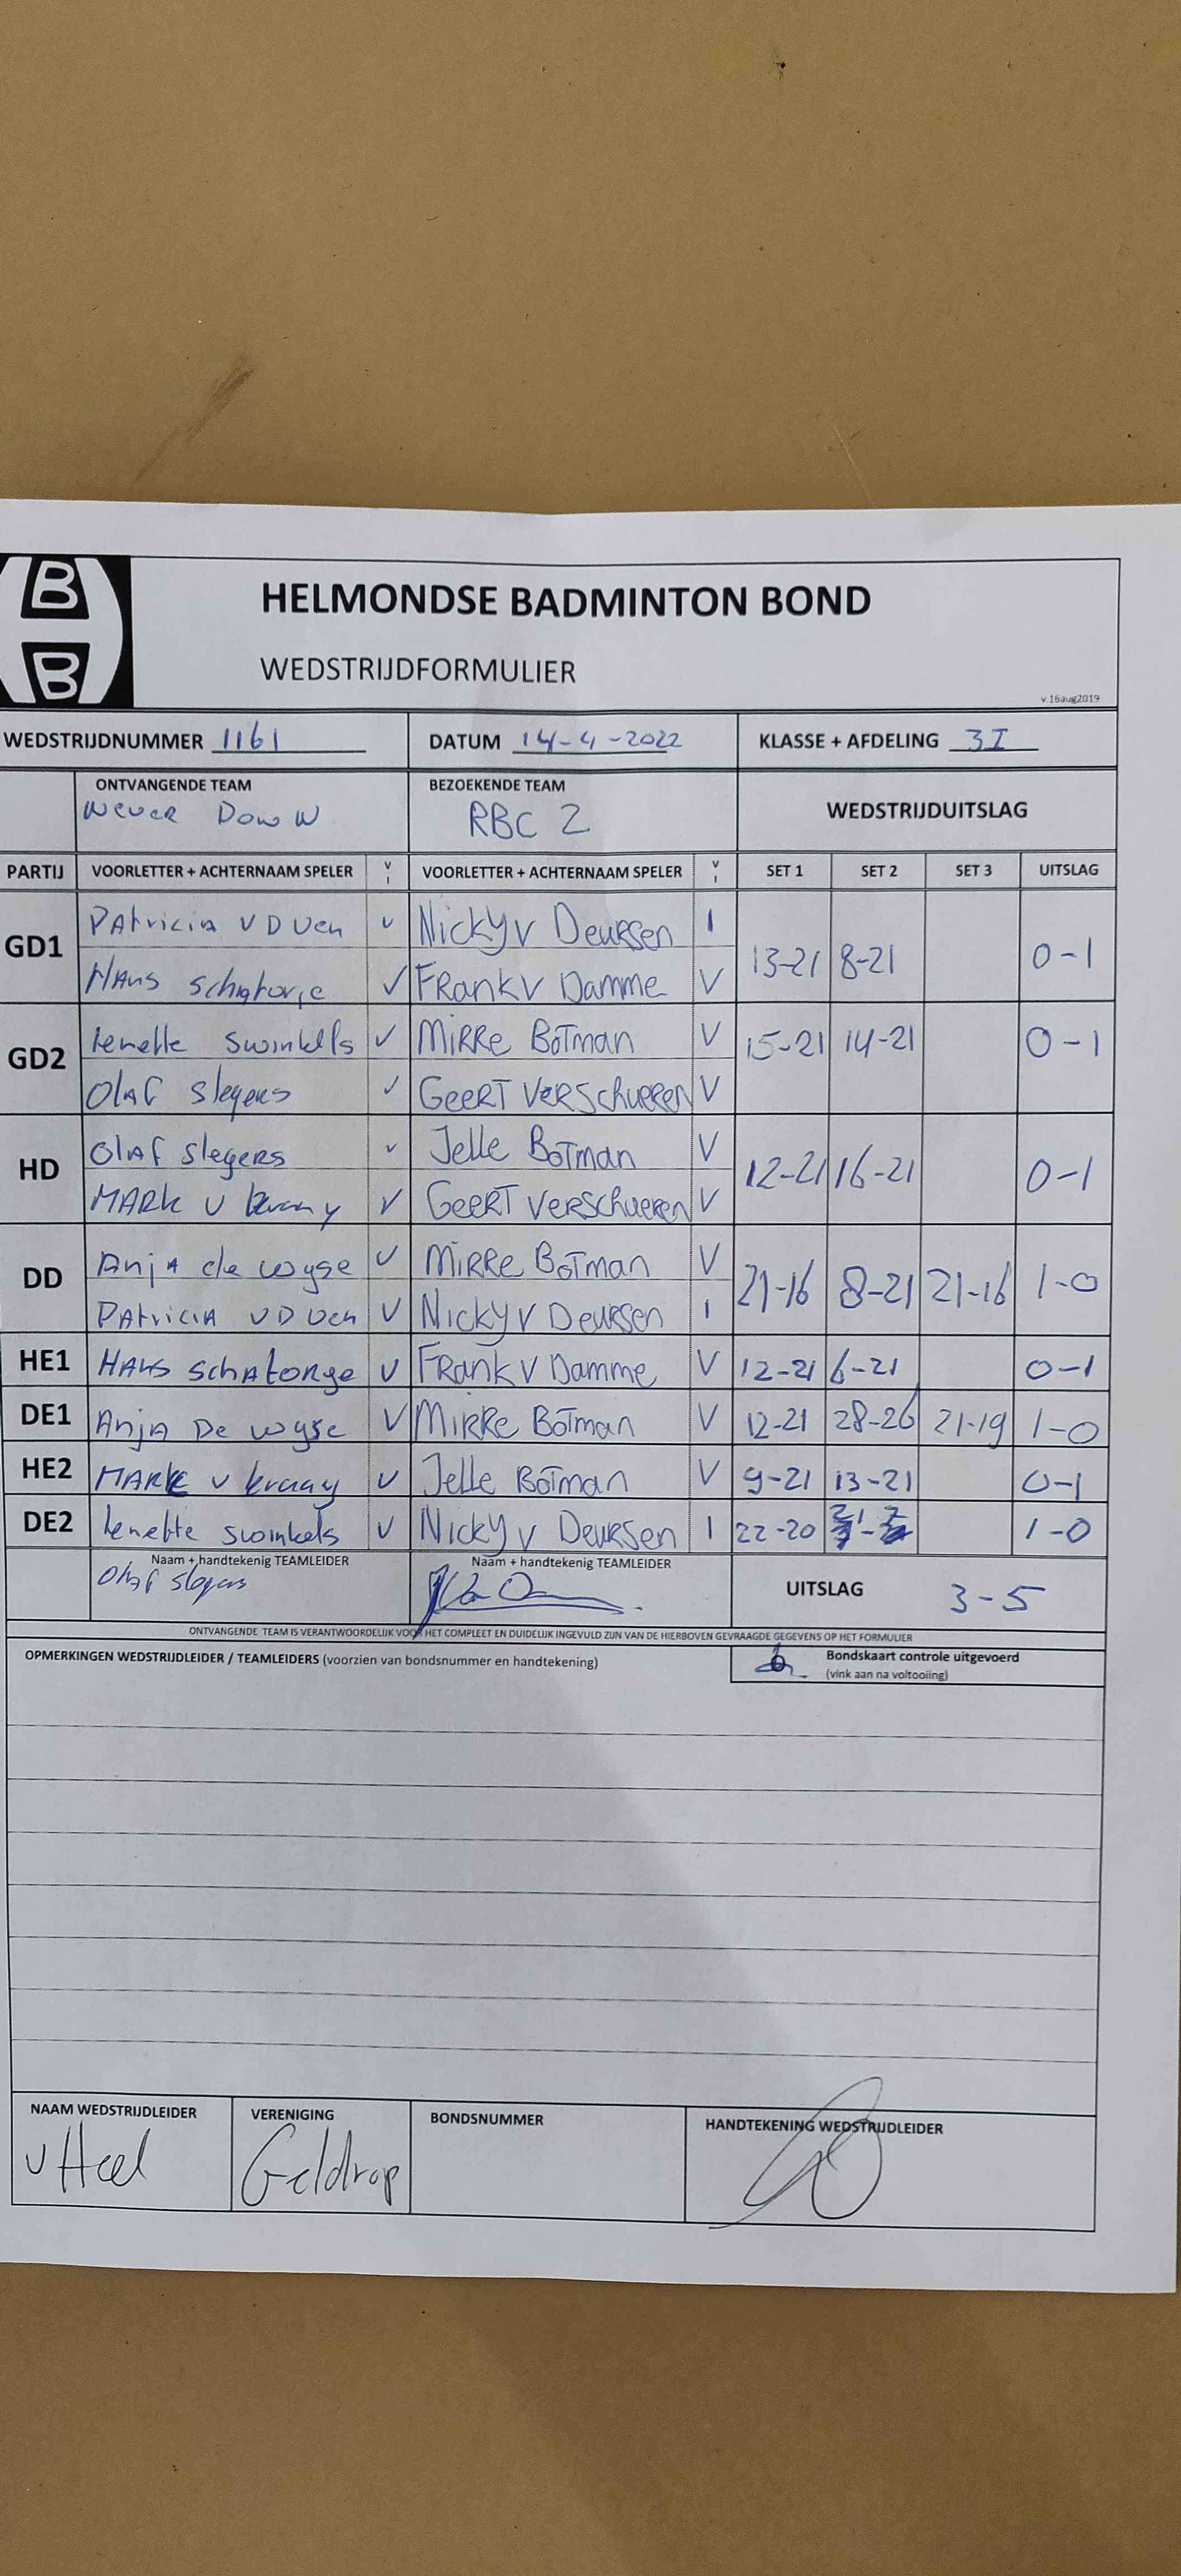 B
B
HELMONDSE BADMINTON BOND
WEDSTRIJDFORMULIER
v.16aug2019
WEDSTRIJDNUMMER 1161 DATUM 14-4-2022 KLASSE + AFDELING 3I
ONTVANGENDE TEAM BEZOEKENDE TEAM WEDSTRIJDUITSLAG
Never Down RBC 2
PARTIJ VOORLETTER + ACHTERNAAM SPELER V I VOORLETTER + ACHTERNAAM SPELER V I SET 1 SET 2 SET 3 UITSLAG
GD1 Patricia v D Ven V Nicky v Deursen I 13-21 8-21 0-1
Hans Schatorje V Frank v Damme V
GD2 Lenette Swinkels V Mirre Botman V 15-21 14-21 0-1
Olaf Slegers V Geert Verschueren V
HD Olaf Slegers V Jelle Botman V 12-21 16-21 0-1
Mark v Kraay V Geert Verschueren V
DD Anja de Wyse V Mirre Botman V 21-16 8-21 21-16 1-0
Patricia v D Ven V Nicky v Deursen I
HE1 Hans Schatorye V Frank v Damme V 12-21 6-21 0-1
DE1 Anja De Wyse V Mirre Botman V 12-21 28-26 21-19 1-0
HE2 Mark v Kraay V Jelle Botman V 9-21 13-21 0-1
DE2 Lenette Swinkels V Nicky v Deursen I 22-20 1-0
Naam + handtekenig TEAMLEIDER Naam + handtekenig TEAMLEIDER UITSLAG 3-5
Olaf Slegers
ONTVANGENDE TEAM IS VERANTWOORDELIJK VOOR HET COMPLEET EN DUIDELIJK INGEVULD ZIJN VAN DE HIERBOVEN GEVRAAGDE GEGEVENS OP HET FORMULIER
OPMERKINGEN WEDSTRIJDLEIDER / TEAMLEIDERS (voorzien van bondsnummer en handtekening) Bondskaart controle uitgevoerd
(vink aan na voltooiing)
NAAM WEDSTRIJDLEIDER VERENIGING BONDSNUMMER HANDTEKENING WEDSTRIJDLEIDER
v Heel Geldrop